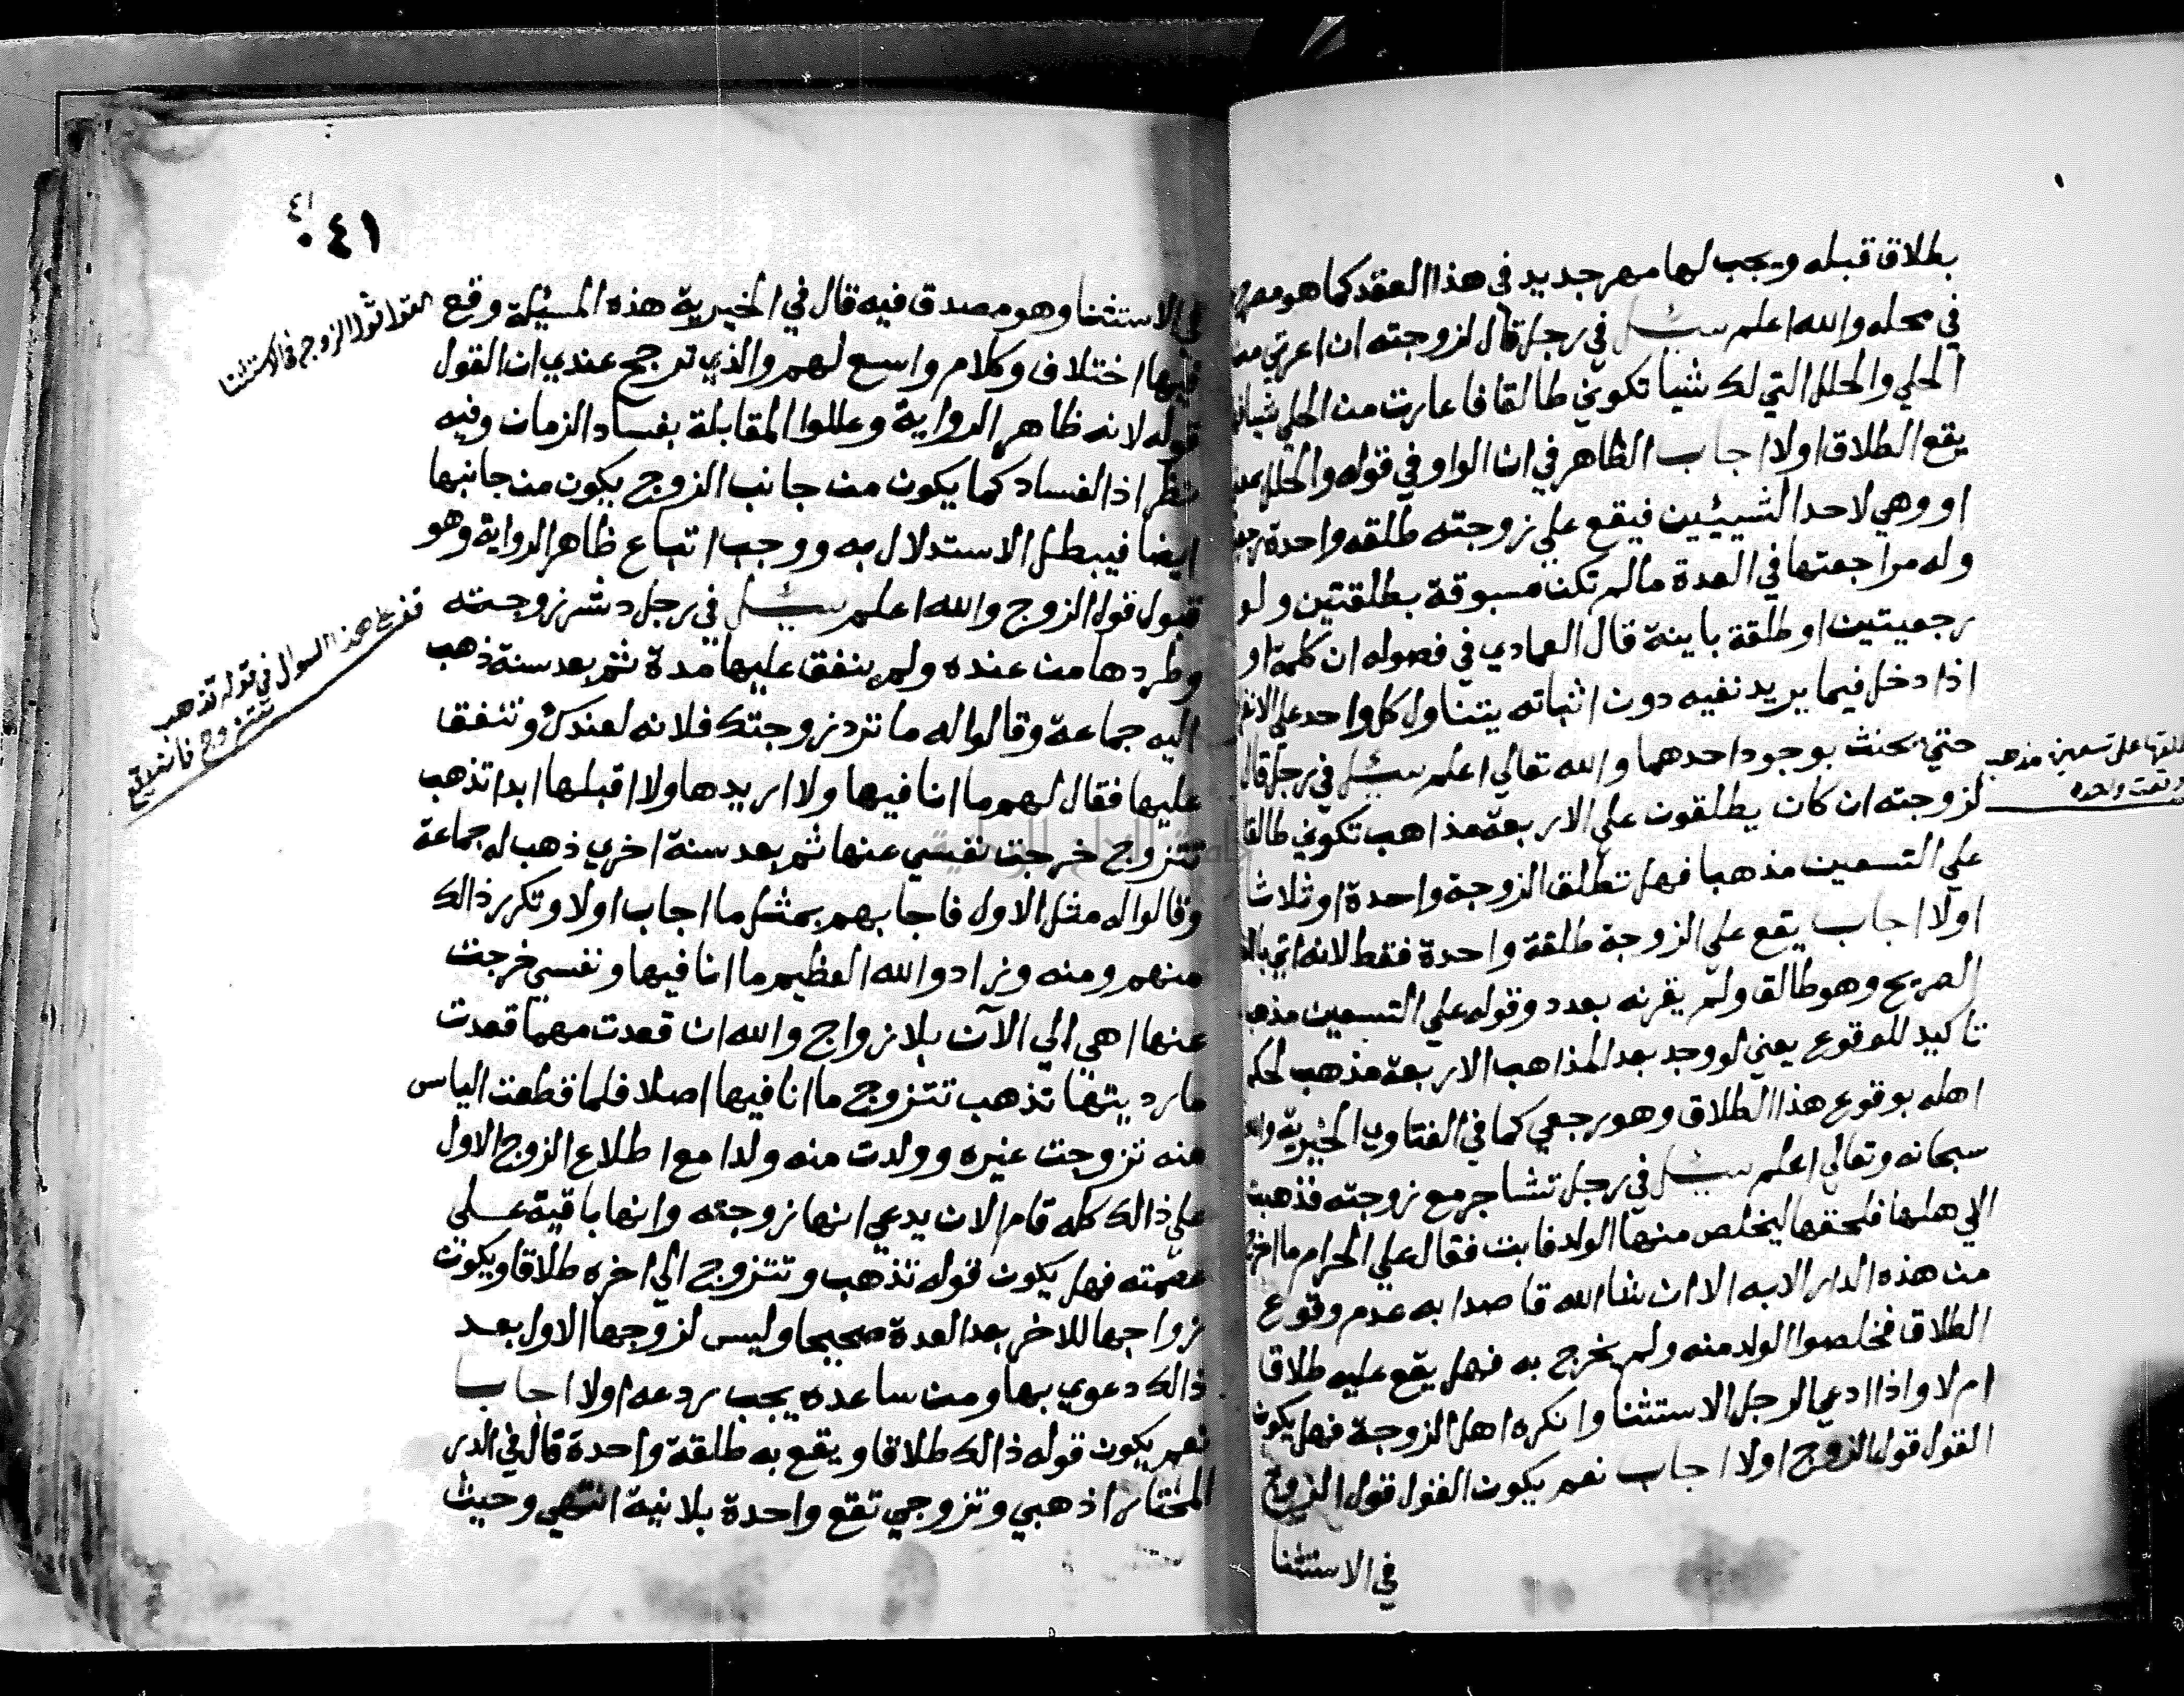 بطلاق قبله ويجب لها مهر جديد في هذا العقد كما هو
في محله والله اعلم سئل في رجل قال لزوجته ان اعرتي من
الحلي والحلل التي لك شيأ تكوني طالقا فاعارت من الحلي شيأ
يقع الطلاق اولا اجاب الظاهر في ان الواو في قوله والحلل بمعني
او وهي لاحد الشييئين فيقع علي زوجته طلقه واحدة
وله مراجعتها في العدة مالم تكن مسبوقة بطلقتين ولو
رجعيتين او طلقة باينة قال العمادي في فصوله ان كلمة او
اذا دخل فيما يريد نفيه دون اثباته يتناول كل واحد علي
حتي يحنث بوجود احدهما والله تعالي اعلم سئل في رجل قال
لزوجته ان كان يطلقون علي الاربعة مذاهب تكوني طالقا
علي التسعين مذهبا فهل تطلق الزوجة واحدة او ثلاثا
اولا اجاب يقع علي الزوجة طلقة واحدة فقط لانه اتي
الصريح وهو طالقا ولم يقرنه بعدد وقوله علي التسعين
تاكيد للوقوع يعني لو وجد بعد المذاهب الاربعة مذهب لحكم
اهله بوقوع هذا الطلاق وهو رجعي كما في الفتاوي الخيرية
سبحانه وتعالي اعلم سئل في رجل تشاجر مع زوجته فذهبت
الي اهلها فلحقها ليخلص منها الولد فابت فقال علي الحرام ما اخرج
من هذه الدار الا به الا ان شا الله قاصدا به عدم وقوع
الطلاق فخلصوا الولد منه ولم يخرج به فهل يقع عليه طلاقا
ام لا واذا ادعي الرجل الاستثنا وانكره اهل الزوجة فهل يكون
القول قول الزوج اولا اجاب نعم يكون القول قول الزوج
في الاستثنا
علي تسعين مذهب
وقعت واحده
٤١
٠٤١
في الاستثنا وهو مصدق فيه قال في الخيرية هذه المسئلة وقع
فيها اختلاف وكلام واسع لهم والذي ترجح عندي ان القول
قوله لانه ظاهر الرواية وعللوا المقابلة بفساد الزمان وفيه
نظر اذ الفساد كما يكون من جانب الزوج يكون من جانبها
ايضا فيبطل الاستدلال به ووجب اتباع ظاهر الرواية وهو
قبول قول الزوج والله اعلم سئل في رجل دشر زوجته
وطردها من عنده ولم ينفق عليها مدة ثم بعد سنة ذهب
اليه جماعة وقالوا له ما ترد زوجتك فلانه لعندك وتنفق
عليها فقال لهم ما انا فيها ولا اريدها ولا اقبلها ابدا تذهب
تتزوج خرجت نفسي عنها ثم بعد سنة اخري ذهب له جماعة
وقالوا له مثل الاول فاجابهم بمثل ما اجاب اولا وتكرر ذالك
منهم ومنه وزاد والله العظيم ما انا فيها ونفسي خرجت
عنها اهي الي الآن بلا زواج والله ان قعدت مهما قعدت
ما رديتها تذهب تتزوج ما انا فيها اصلا فلما قطعت الياس
منه تزوجت غيره وولدت منه ولدا مع اطلاع الزوج الاول
علي ذالك كله قام الان يدعي انها زوجته وانها باقية علي
عصمته فهل يكون قوله تذهب وتتزوج الي اخره طلاقا ويكون
زواجها للاخر بعد العدة صحيحا وليس لزوجها الاول بعد
ذالك دعوي بها ومن ساعده يجب ردعه اولا اجاب
نعم يكون قوله ذالك طلاقا ويقع به طلقة واحدة قال في الدر
المختار اذهبي وتزوجي تقع واحدة بلا نية انتهي وحيث
القول قول الزوج في الاستثنا
هذا السوال في قوله تذهب
تتزوج